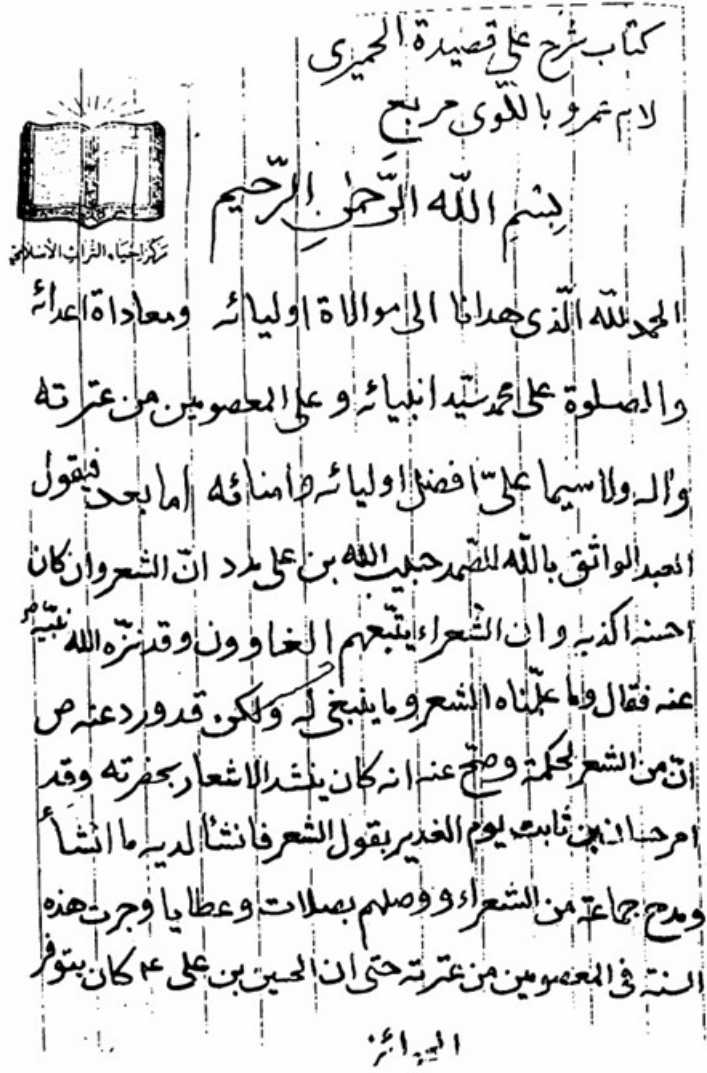 كتاب شرح على قصيدة الحميرى
لام عمرو باللّوى مربع
بِسْمِ اللّه الرَّحمٰنِ الرَّحيم
مركز احياء التراث الاسلامي
الحمد للّه الّذى هدانا الى موالاة اوليائه ومعاداة اعدائه
والصلوة على محمد سيّد انبيائه و على المعصومين من عترته
واله ولا سيما علىّ افضل اوليائه وامنائه اما بعد فيقول
العبد الواثق باللّه الصّمد حبيب اللّه بن على مدد انّ الشعر وان كان
احسنه اكذبه و ان الشعراء يتّبعهم الغاوون وقد نزّه الله نبيّه ص
عنه فقال وما علّمناه الشعر وما ينبغى له ولكن قد ورد عنه ص
انّ من الشعر لحكمة وصحّ عنه انه كان ينشد الاشعار بحضرته وقد
امر حسان بن ثابت يوم الغدير بقول الشعر فانشأ لديه ما انشأ
ومدح جماعة من الشعراء ووصلهم بصلات وعطايا وجرت هذه
السنة فى المعصومين من عترته حتى ان الحسين بن على ع كان يتوفر